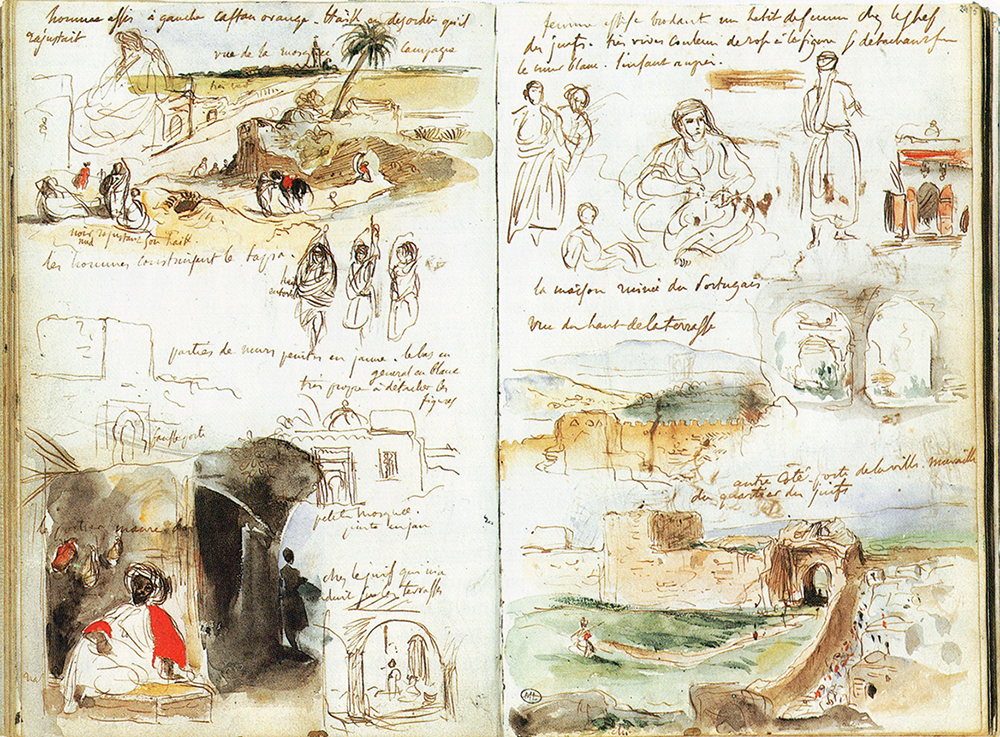 hommes assis à gauche caftan orange. Haïk en desordre qu'il
rajustait
vue de la mosquée
campagne
très vert
noir rajustant son haïk.
nud
les hommes construisant le tappia.
parties de murs peintes en jaune. le bas en
general en blanc
très propre à detacher les
figures
fausse porte
le portier maure
petite mosquée
peinte en jaune
chez le juif qui
duit sur les terrasses
femme assise brodant un habit de femme chez le chef
des juifs. très vives couleurs de rose à la figure se detachant sur
le mur blanc. l'enfant auprès.
la maison ruinée du Portugais
vue du haut de la terrasse
autre côté porte de la ville. muraille
du quartier des juifs